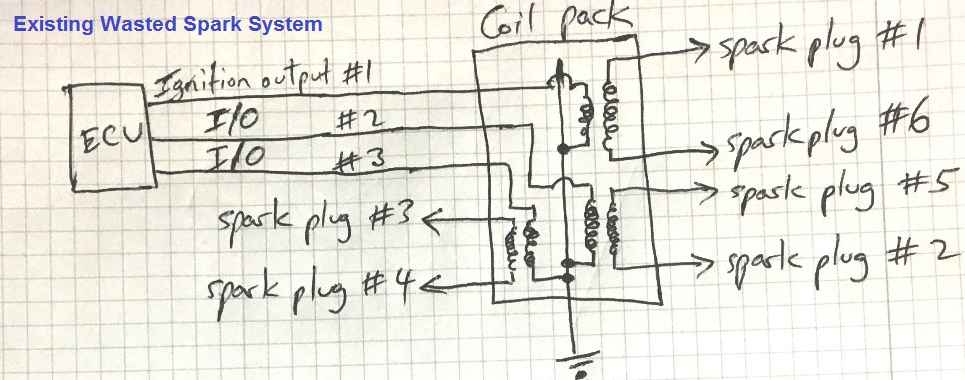 Existing Wasted Spark System
Coil pack
spark plug #1
Ignition output #1
I/O #2
ECU
I/O #3
spark plug #6
spark plug #5
spark plug #3
spark plug #2
spark plug #4